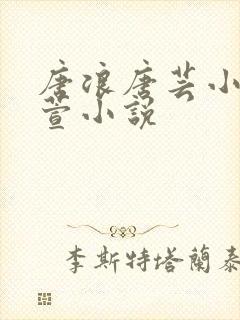 唐浪唐芸小
萱小説
李斯特塔蘭泰